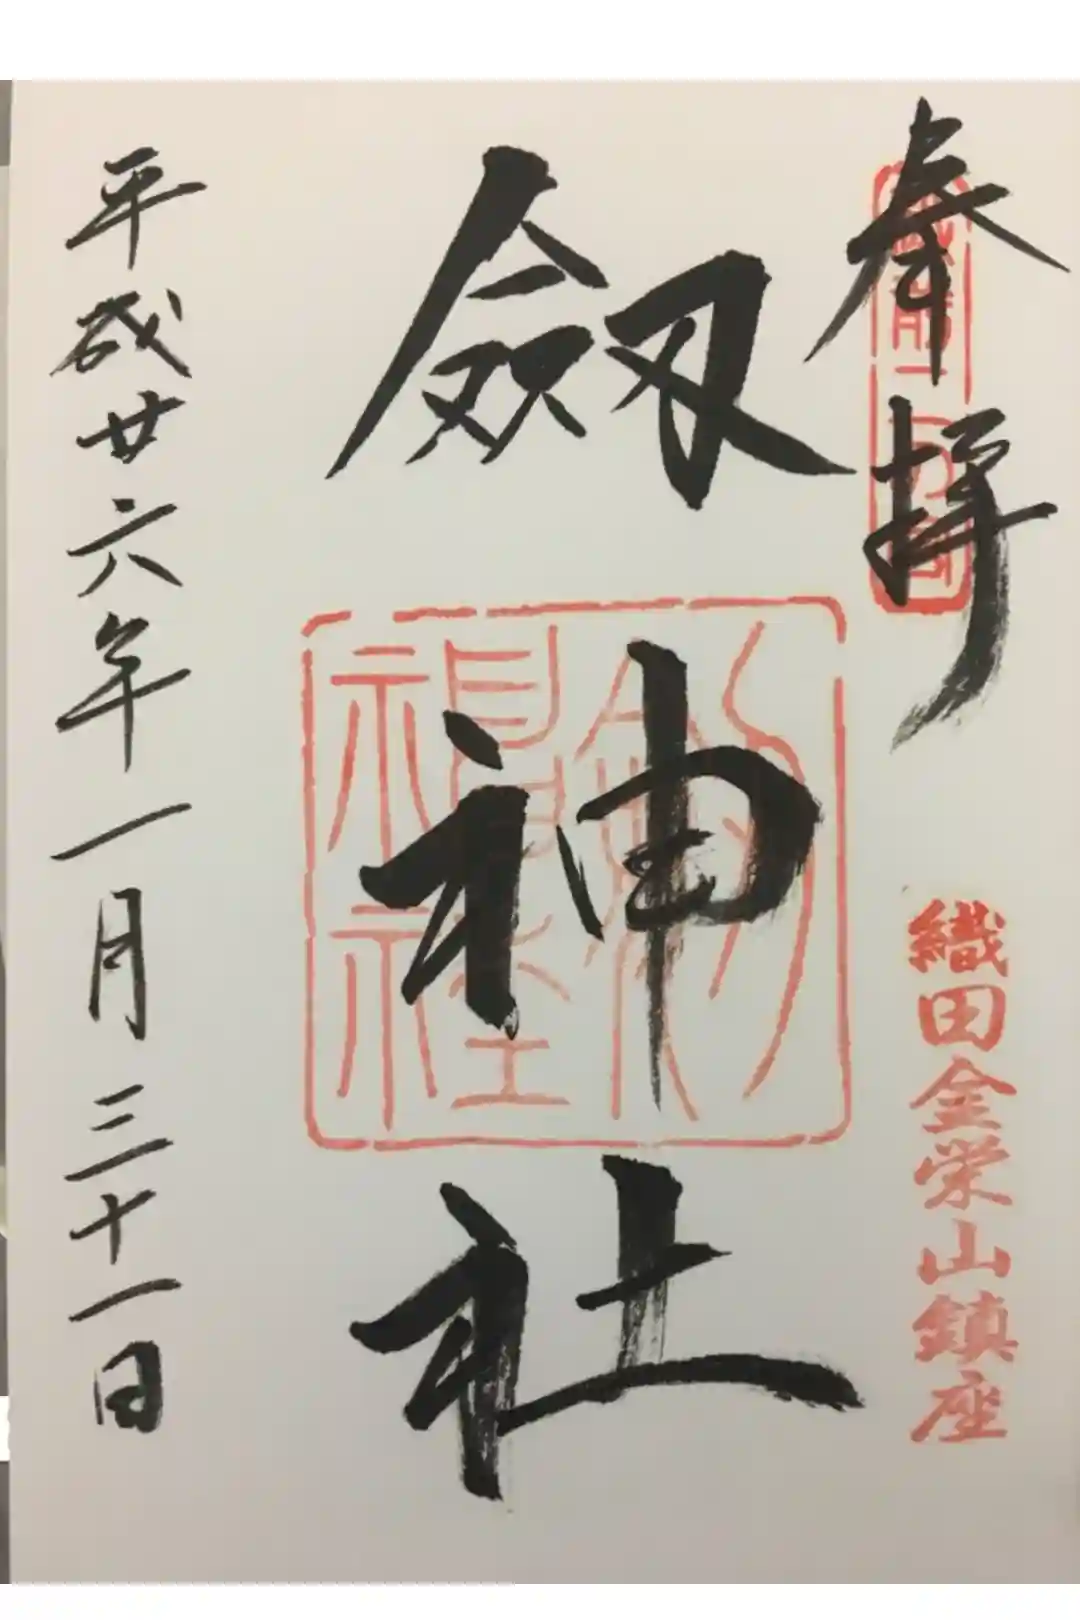 奉拝
織田金栄山鎮座
劔神社
劔神社
平成廿六年一月三十一日